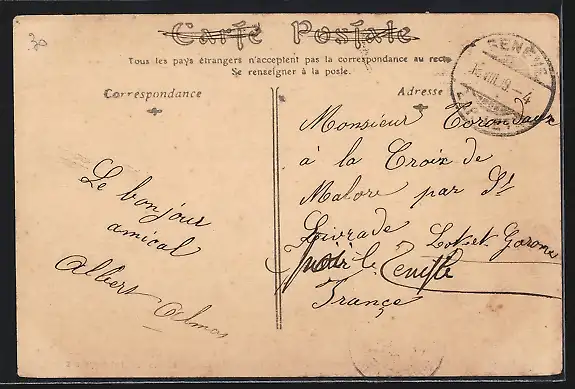 30
Carte Postale
Tous les pays étrangers n'acceptent pas la correspondance au recto
Se renseigner à la poste.
Correspondance
Adresse
GENÈVE
Le bonjour
amical
Albert Olmos
Monsieur
à la Croix de
Malore par St
Livrade
Lot et Garonne
voir le
France